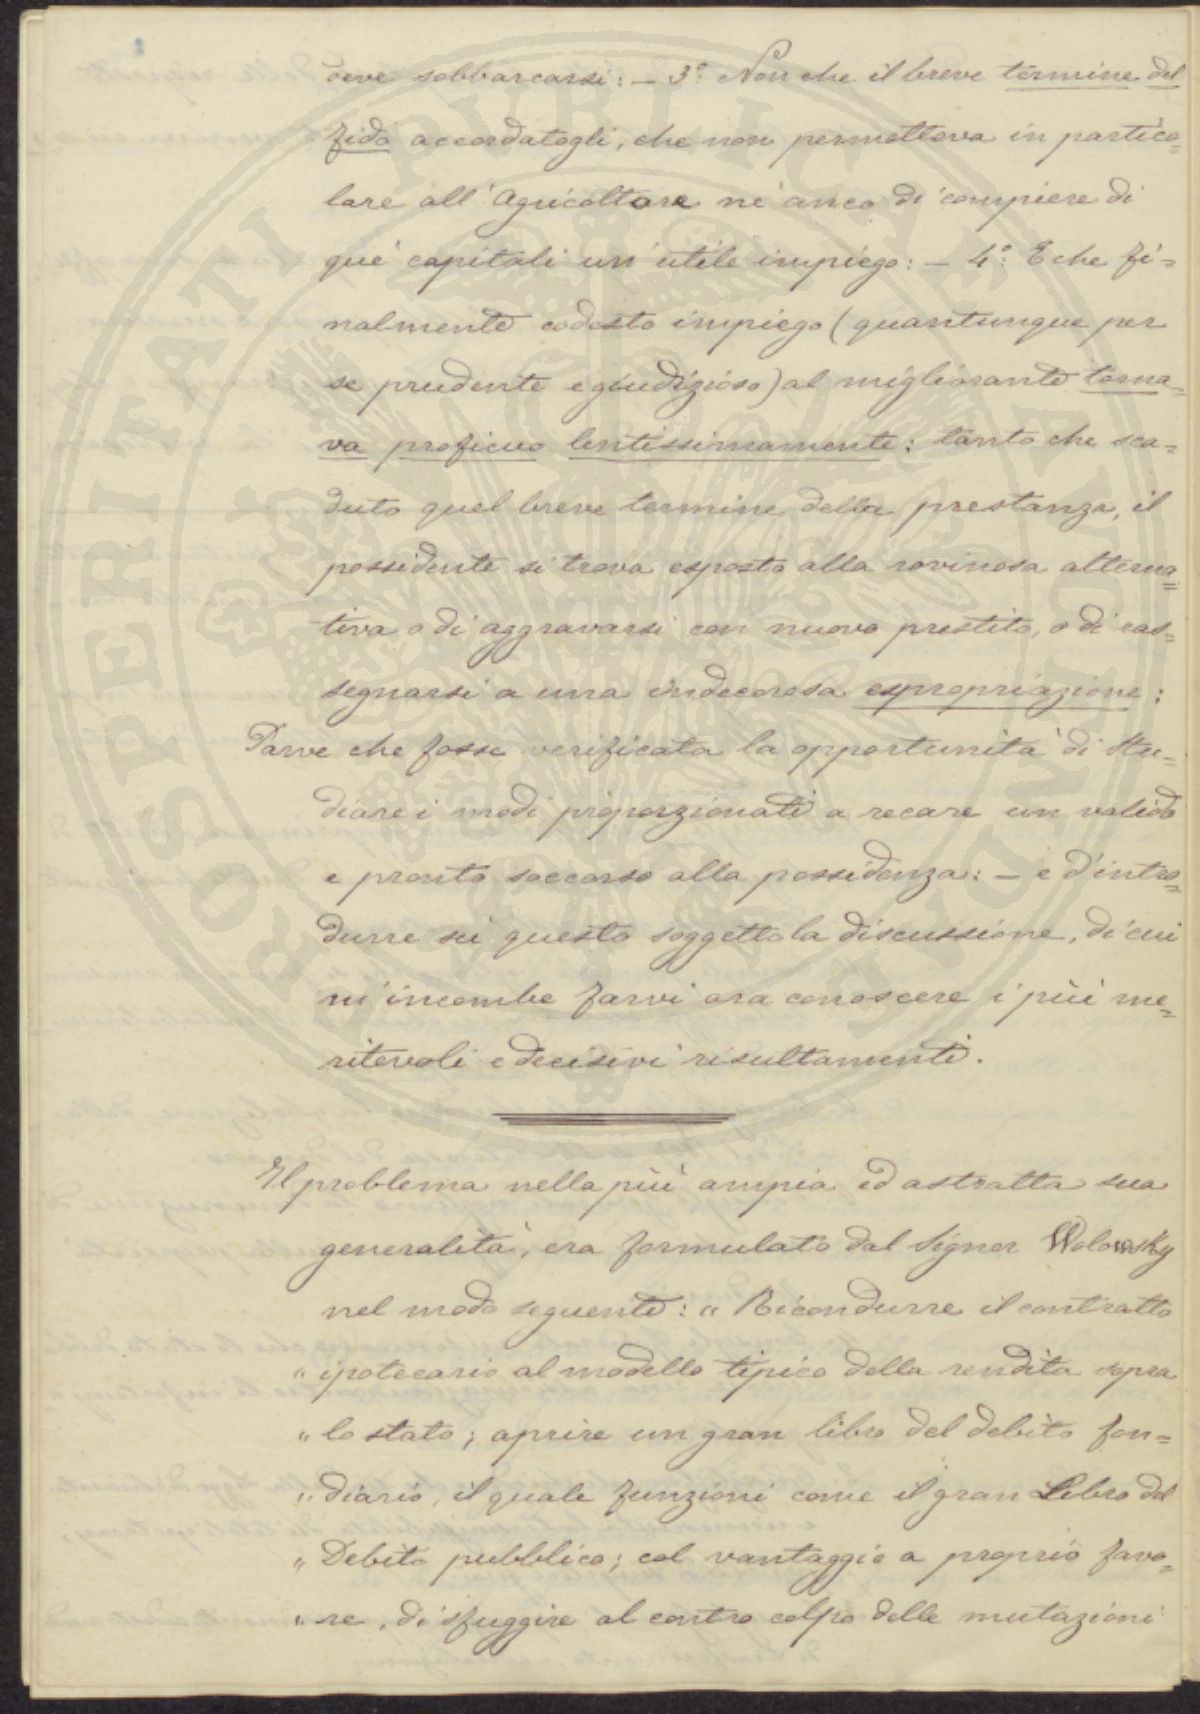 deve sobbarcarsi: – 3.° Non che il breve termine del
fido accordatogli, che non permetteva in partico=
lare all'Agricoltore nè anco di compiere di
que' capitali un'utile impiego: – 4.° E che fi=
nalmente codesto impiego (quantunque per
se prudente e giudizioso) al migliorante torna=
va proficuo lentissimamente: tanto che sca=
duto quel breve termine della prestanza, il
possidente si trova esposto alla rovinosa alterna=
tiva o di aggravarsi con nuovo prestito, o di ras=
segnarsi a una indecorosa espropriazione:
Parve che fosse verificata la opportunità di stu=
diare i modi proporzionati a recare un valido
e pronto soccorso alla possidenza: – e d'intro=
durre su questo soggetto la discussione, di cui
m'incombe farvi ora conoscere i più me=
ritevoli e decisivi risultamenti.
Il problema nella più ampia ed astratta sua
generalità, era formulato dal Signor Wolowsky
nel modo seguente: „ Ricondurre il contratto
„ ipotecario al modello tipico della rendita sopra
„ lo stato; aprire un gran libro del debito fon=
„ diario, il quale funzioni come il gran Libro del
„ Debito pubblico; col vantaggio a proprio favo=
„ re, di sfuggire al contro colpo delle mutazioni
PROSPERITATI PUBLICAE AUGENDAE